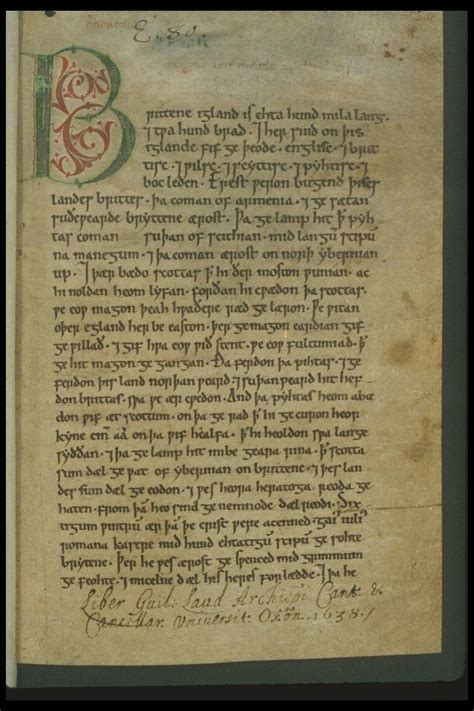 E. 80.
Brittene igland is ehta hund mila lang.
⁊ tƿa hund brad. ⁊ her sind on þis
iglande fif ge þeode. englisc. ⁊ brit
tisc. ⁊ ƿilsc. ⁊ scyttisc. ⁊ pyhtisc. ⁊
boc leden. Erest ƿeron bugend þises
landes brittes. þa coman of armenia. ⁊ ge sætan
suðeƿearde bryttene ærost. Þa ge lamp hit ꝥ pyh
tas coman suþan of scithian. mid langū scipū
na manegum. ⁊ þa coman ærost on norþ ybernian
up. ⁊ þær bædo scottas ꝥ hi ðer moston ƿunian. ac
hi noldan heom lyfan. forðan hi cƿædon þa scottas.
ƿe eoƿ magon þeah hƿaðere ræd ge læron. Ƿe ƿitan
oþer egland her be easton. þer ge magon eardian gif
ge ƿillað. ⁊ gif hƿa eoƿ ƿið stent. ƿe eoƿ fultumiað. ꝥ
ge hit magon ge gangan. Ða ferdon þa pihtas. ⁊ ge
ferdon þis land norþan ƿeard. ⁊ suþan ƿeard hit hef
don brittas. sƿa ƿe ær cƿedon. And þa pyhtas heom abæ
don ƿif æt scottum. on þa ge rad ꝥ hi ge curon heor
kyne cin aa on þa ƿif healfa. ꝥ hi heoldon sƿa lange
syððan. ⁊ þa ge lamp hit imbe geara rina. ꝥ scotta
sum dæl ge ƿat of ybernian on brittene. ⁊ þes lan
des sum dæl ge eodon. ⁊ ƿes heora heratoga reoda ge
haten. from þā heo sind ge nemnode dæl reodi. Six
tigum ƿintrū ær þā þe crist ƿere acenned. gaiꝰ iuliꝰ
romana kasere mid hund ehtatigū scipū ge sohte
brytene. Þer he ƿes ærost ge sƿenced mid grimmum
ge feohte. ⁊ micelne dæl his heres forlædde. ⁊ þa he
Liber Guil: Laud Archiepi Cant: &
Cancellar. Universit: Oxōn. 1638.